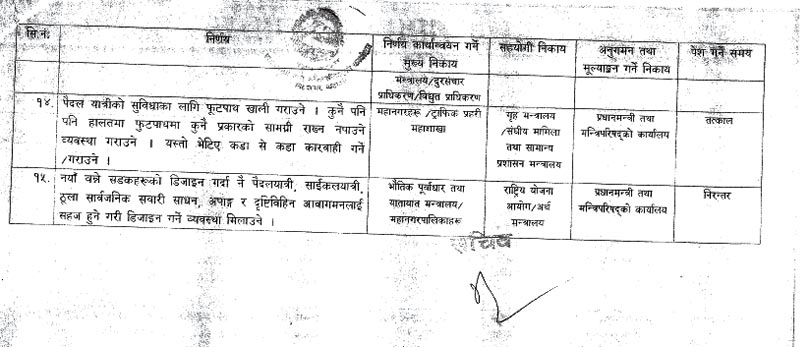 सि.नं.
निर्णय
निर्णय कार्यान्वयन गर्ने
मुख्य निकाय
सहयोगी निकाय
अनुगमन तथा
मूल्याङ्कन गर्ने निकाय
पेश गर्ने समय
मन्त्रालय/दुरसंचार
प्राधिकरण/विद्युत प्राधिकरण
१४.
पैदल यात्रीको सुविधाका लागि फूटपाथ खाली गराउने । कुनै पनि
पनि हालतमा फुटपाथमा कुनै प्रकारको सामग्री राख्न नपाउने
व्यवस्था गराउने । यस्तो भेटिए कडा से कडा कारवाही गर्ने
/गराउने ।
महानगरहरू /ट्राफिक प्रहरी
महाशाखा
गृह मन्त्रालय
/संघीय मामिला
तथा सामान्य
प्रशासन मन्त्रालय
प्रधानमन्त्री तथा
मन्त्रिपरिषद्को कार्यालय
तत्काल
१५.
नयाँ बन्ने सडकहरूको डिजाइन गर्दा नै पैदलयात्री, साईकलयात्री,
ठूला सार्वजनिक सवारी साधन, अपाङ्ग र दृष्टिविहिन आवागमनलाई
सहज हुने गरी डिजाइन गर्ने व्यवस्था मिलाउने ।
भौतिक पूर्वाधार तथा
यातायात मन्त्रालय/
महानगरपालिकाहरू
राष्ट्रिय योजना
आयोग/अर्थ
मन्त्रालय
प्रधानमन्त्री तथा
मन्त्रिपरिषद्को कार्यालय
निरन्तर
सचिव